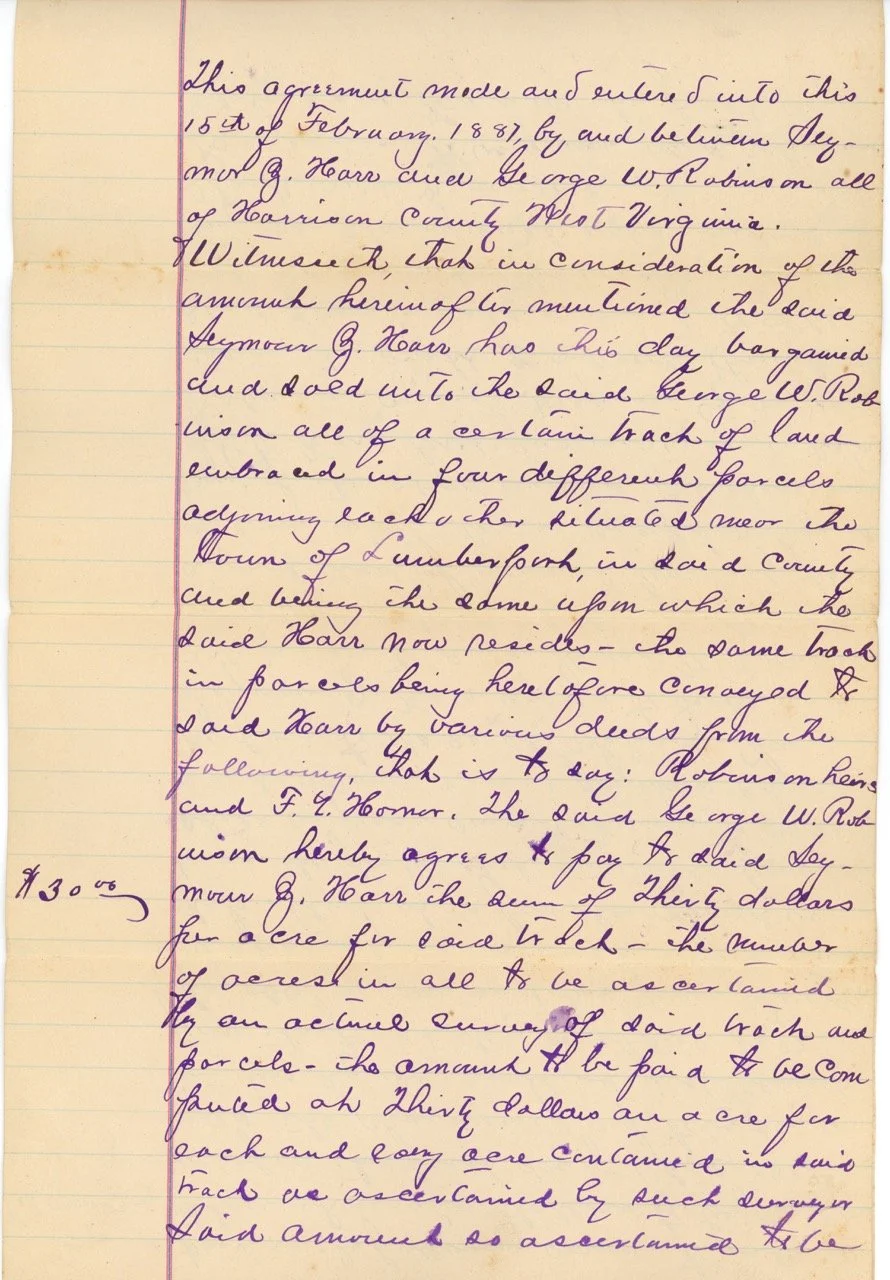 This agreement made and entered into this
15th of February. 1887, by and between Sey-
mor Z. Harr and George W. Robinson all
of Harrison County West Virginia.
Witnesseth, that in consideration of the
amount hereinafter mentioned the said
Seymour Z. Harr has this day bargained
and sold unto the said George W. Rob
inson all of a certain track of land
embraced in four different parcels
adjoining each other situated near the
Town of Lumberport, in said County
and being the same upon which the
said Harr now resides - the same track
in parcels being heretofore conveyed to
said Harr by various deeds from the
following, that is to say: Robinson heirs
and F. Y. Hornor. The said George W. Rob
inson hereby agrees to pay to said Sey-
$30 00 mour Z. Harr the sum of Thirty dollars
per acre for said track - the number
of acres in all to be ascertained
By an actual survey of said track and
parcels - the amount to be paid to be Com
puted at Thirty dollars an acre for
each and every acre contained in said
track as ascertained by such surveyor
Said amount so ascertained to be